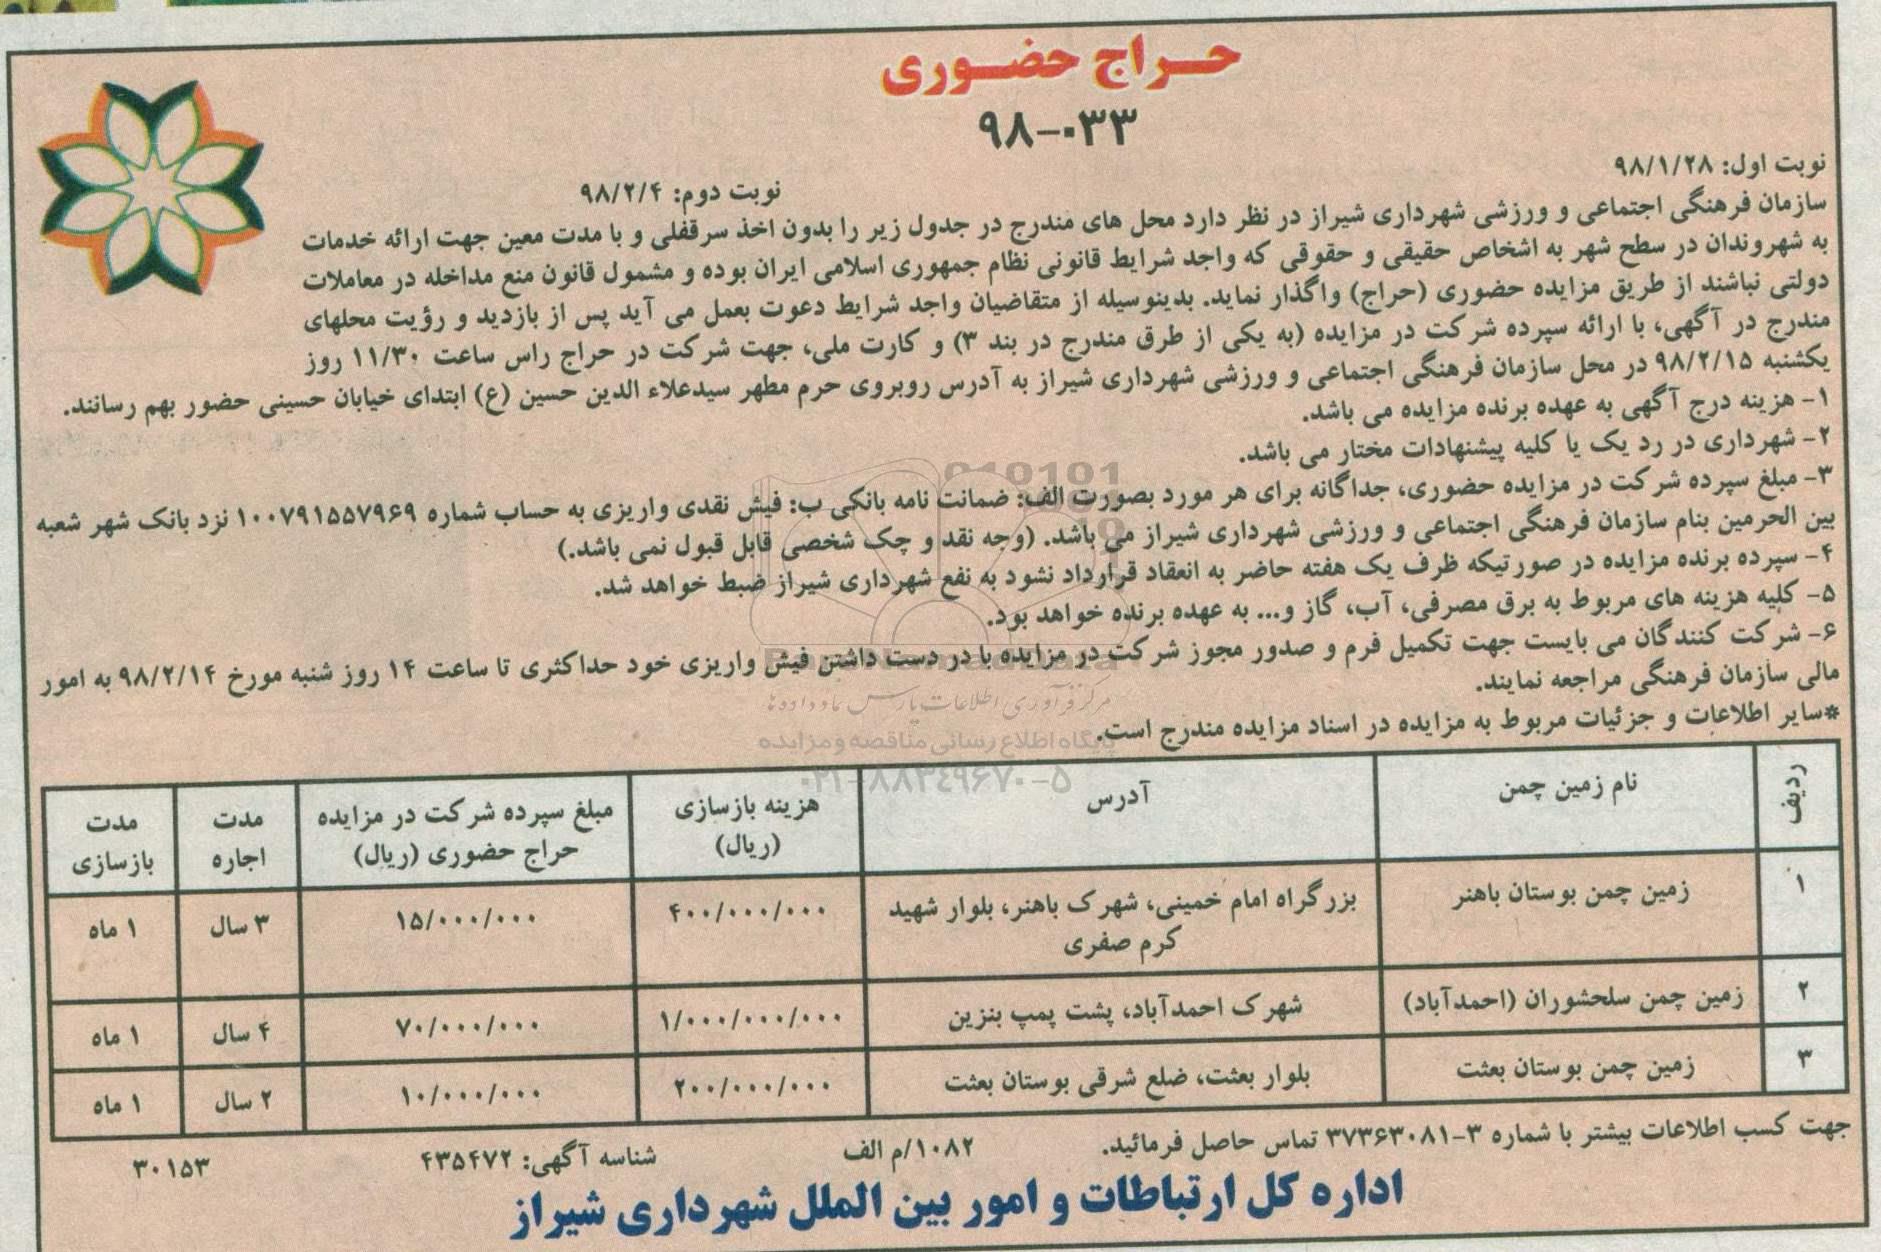 حراج حضوری
۹۸-۰۳۳
نوبت اول: ۹۸/۱/۲۸
نوبت دوم: ۹۸/۲/۴
سازمان فرهنگی اجتماعی و ورزشی شهرداری شیراز در نظر دارد محل های مندرج در جدول زیر را بدون اخذ سرقفلی و با مدت معین جهت ارائه خدمات
به شهروندان در سطح شهر به اشخاص حقیقی و حقوقی که واجد شرایط قانونی نظام جمهوری اسلامی ایران بوده و مشمول قانون منع مداخله در معاملات
دولتی نباشند از طریق مزایده حضوری (حراج) واگذار نماید. بدینوسیله از متقاضیان واجد شرایط دعوت بعمل می آید پس از بازدید و رؤیت محلهای
مندرج در آگهی، با ارائه سپرده شرکت در مزایده (به یکی از طرق مندرج در بند ۳) و کارت ملی، جهت شرکت در حراج راس ساعت ۱۱/۳۰ روز
یکشنبه ۹۸/۲/۱۵ در محل سازمان فرهنگی اجتماعی و ورزشی شهرداری شیراز به آدرس روبروی حرم مطهر سیدعلاء الدین حسین (ع) ابتدای خیابان حسینی حضور بهم رسانند.
۱- هزینه درج آگهی به عهده برنده مزایده می باشد.
۲- شهرداری در رد یک یا کلیه پیشنهادات مختار می باشد.
۳- مبلغ سپرده شرکت در مزایده حضوری، جداگانه برای هر مورد بصورت الف: ضمانت نامه بانکی ب: فیش نقدی واریزی به حساب شماره ۱۰۰۷۹۱۵۵۷۹۶۹ نزد بانک شهر شعبه
بین الحرمین بنام سازمان فرهنگی اجتماعی و ورزشی شهرداری شیراز می باشد. (وجه نقد و چک شخصی قابل قبول نمی باشد.)
۴- سپرده برنده مزایده در صورتیکه ظرف یک هفته حاضر به انعقاد قرارداد نشود به نفع شهرداری شیراز ضبط خواهد شد.
۵- کلیه هزینه های مربوط به برق مصرفی، آب، گاز و... به عهده برنده خواهد بود.
۶- شرکت کنندگان می بایست جهت تکمیل فرم و صدور مجوز شرکت در مزایده با در دست داشتن فیش واریزی خود حداکثری تا ساعت ۱۴ روز شنبه مورخ ۹۸/۲/۱۴ به امور
مالی سازمان فرهنگی مراجعه نمایند.
*سایر اطلاعات و جزئیات مربوط به مزایده در اسناد مزایده مندرج است.
مرکز فرآوری اطلاعات پارس نماد داده ها
پایگاه اطلاع رسانی مناقصه و مزایده
۰۲۱-۸۸۳۴۹۶۷۰-۵
ردیف | نام زمین چمن | آدرس | هزینه بازسازی (ریال) | مبلغ سپرده شرکت در مزایده حراج حضوری (ریال) | مدت اجاره | مدت بازسازی
۱ | زمین چمن بوستان باهنر | بزرگراه امام خمینی، شهرک باهنر، بلوار شهید کرم صفری | ۴۰۰/۰۰۰/۰۰۰ | ۱۵/۰۰۰/۰۰۰ | ۳ سال | ۱ ماه
۲ | زمین چمن سلحشوران (احمدآباد) | شهرک احمدآباد، پشت پمپ بنزین | ۱/۰۰۰/۰۰۰/۰۰۰ | ۷۰/۰۰۰/۰۰۰ | ۴ سال | ۱ ماه
۳ | زمین چمن بوستان بعثت | بلوار بعثت، ضلع شرقی بوستان بعثت | ۲۰۰/۰۰۰/۰۰۰ | ۱۰/۰۰۰/۰۰۰ | ۲ سال | ۱ ماه
جهت کسب اطلاعات بیشتر با شماره ۳-۳۷۳۶۳۰۸۱ تماس حاصل فرمائید.
۱۰۸۲/م الف
شناسه آگهی: ۴۳۵۴۷۲
۳۰۱۵۳
اداره کل ارتباطات و امور بین الملل شهرداری شیراز